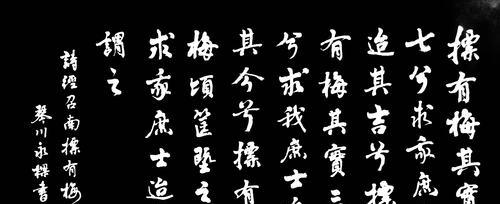 摽有梅其實
七兮求我庶
迨其吉兮摽
有梅其實三
兮求我庶士
其今兮摽有
梅頃筐塈之
求我庶士迨
謂之
詩經召南摽有梅
琴川永樑書